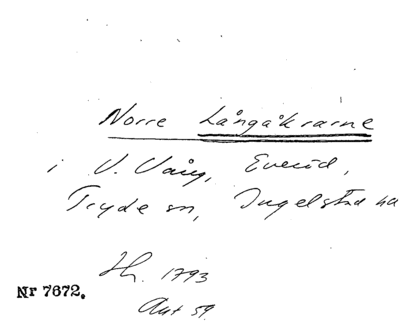 Norre Långåkrarne
i V. Vång, Everöd,
Tryde sn, Ingelstad hd
Hh. 1793
Akt 59.
Nr 7672.